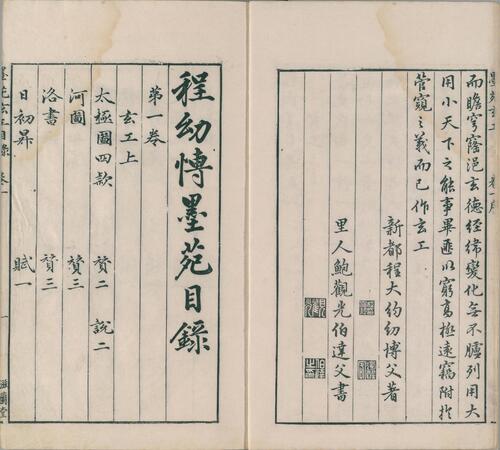 而瞻穹窿浥玄德經緯變化無不臚列用大
用小天下之能事畢匪以窮高極遠竊附於
管窺之義而已作玄工
新都程大約幼博父著
里人鮑觀光伯達父書
程幼博墨苑目錄
第一卷
玄工上
太極圖四款 贊二 說二
河圖 贊三
洛書 贊三
日初昇 賦一
墨苑玄工目錄 卷一
一
滋蘭堂